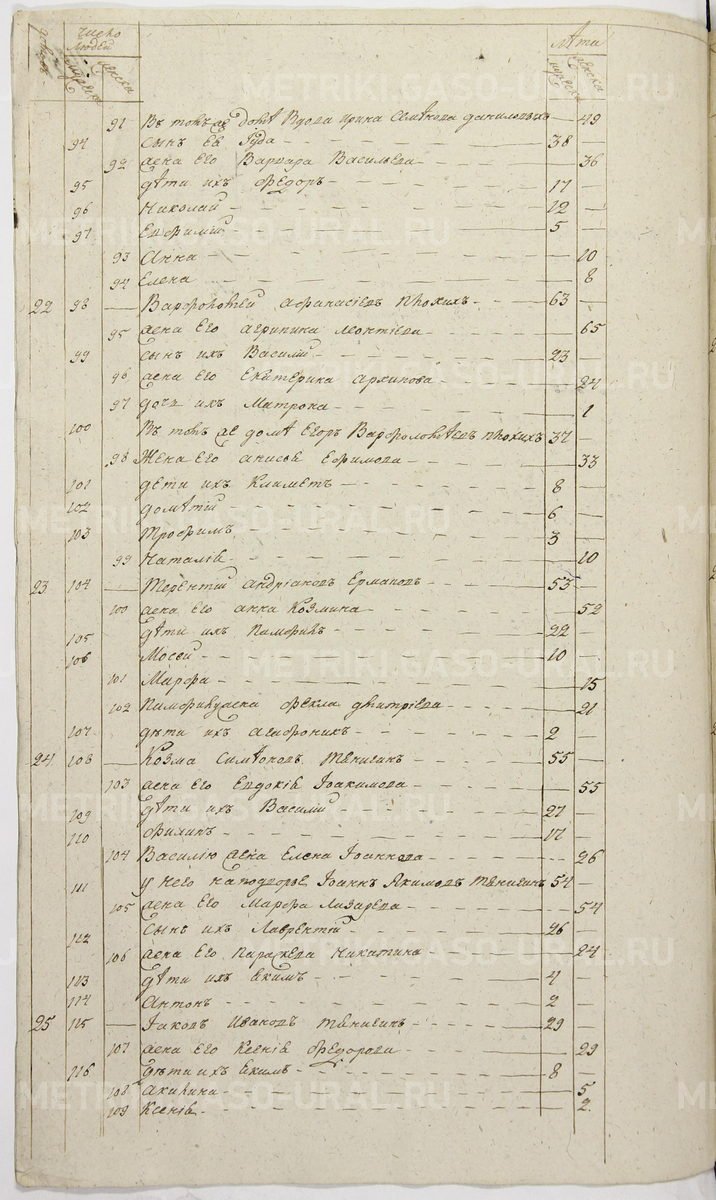 число людей лѣта
мужеска женска мужеска женска
91 Въ томъ же домѣ Вдова Ирина Семѣнова Даниловыхъ — 49
94 сынъ ея Іуда 38 —
92 жена его Варвара Васильева — 36
95 дѣти ихъ Федоръ 17 —
96 Николай 12 —
97 Евфимій 5 —
93 Анна — 10
94 Елена — 8
22 98 — Варфоломѣй Афанасіевъ Плохихъ 63 —
95 жена его Агрипина Леонтіева — 65
99 сынъ ихъ Василій 23 —
96 жена его Екатерина Архипова — 24
97 дочь ихъ Матрона — 1
100 Въ томъ же домѣ Егоръ Варфоломѣевъ Плохихъ 37 —
98 Жена его Анисья Ефимова — 33
101 дети ихъ Климетъ 8 —
102 Домѣтій 6 —
103 Трофимъ 3 —
99 Наталія — 10
23 104 — Терентій Андріановъ Ермаковъ 53 —
100 жена его Анна Козмина — 52
105 дѣти ихъ Памфилъ 22 —
106 Мосей 10 —
101 Марфа — 15
102 Памфилу жена Фекла Дмитріева — 21
107 дѣти ихъ Агафоникъ 2 —
24 108 — Козма Симѣоновъ Тѣнигинъ 55 —
103 жена его Евдокія Іоакимова — 55
109 дѣти ихъ Василій 27 —
110 Филипъ 17 —
104 Василію жена Елена Іоаннова — 26
111 у него на подворье Іоаннъ Якимовъ Тѣнигинъ 54 —
105 жена его Марфа Лазарева — 54
112 сынъ ихъ Лаврентій 26 —
106 жена его Параскева Никитина — 24
113 дѣти ихъ Якимъ 4 —
114 Антонъ 2 —
25 115 — Іаковъ Ивановъ Тѣнигинъ 29 —
107 жена его Ксенія Федорова — 29
116 дѣти ихъ Якимъ 8 —
108 Акилина — 5
109 Ксенія — 2
METRIKI.GASO-URAL.RU